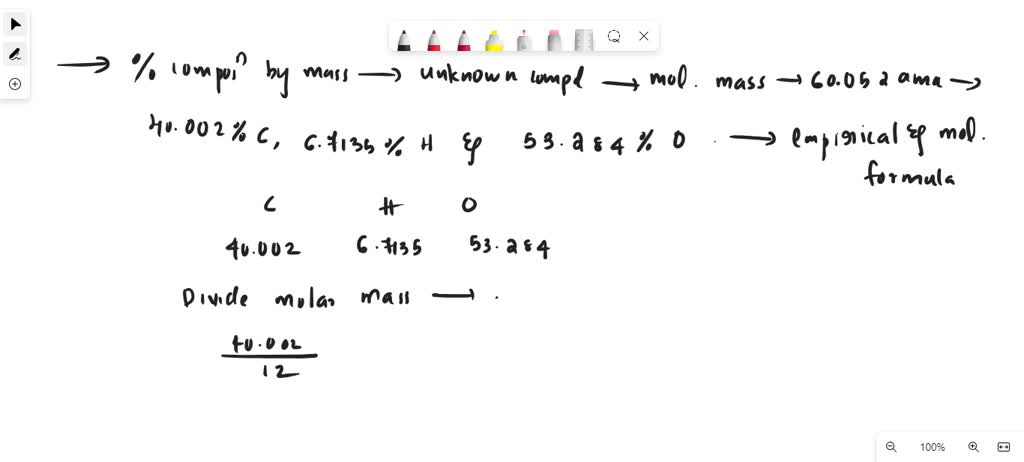 → % compoiⁿ by mass → unknown compd → mol. mass → 60.052 ama →
40.002% C, 6.7135% H & 53.284% O . → empirical & mol. formula
C H O
40.002 6.7135 53.284
Divide molar mass → .
40.002
12
100%